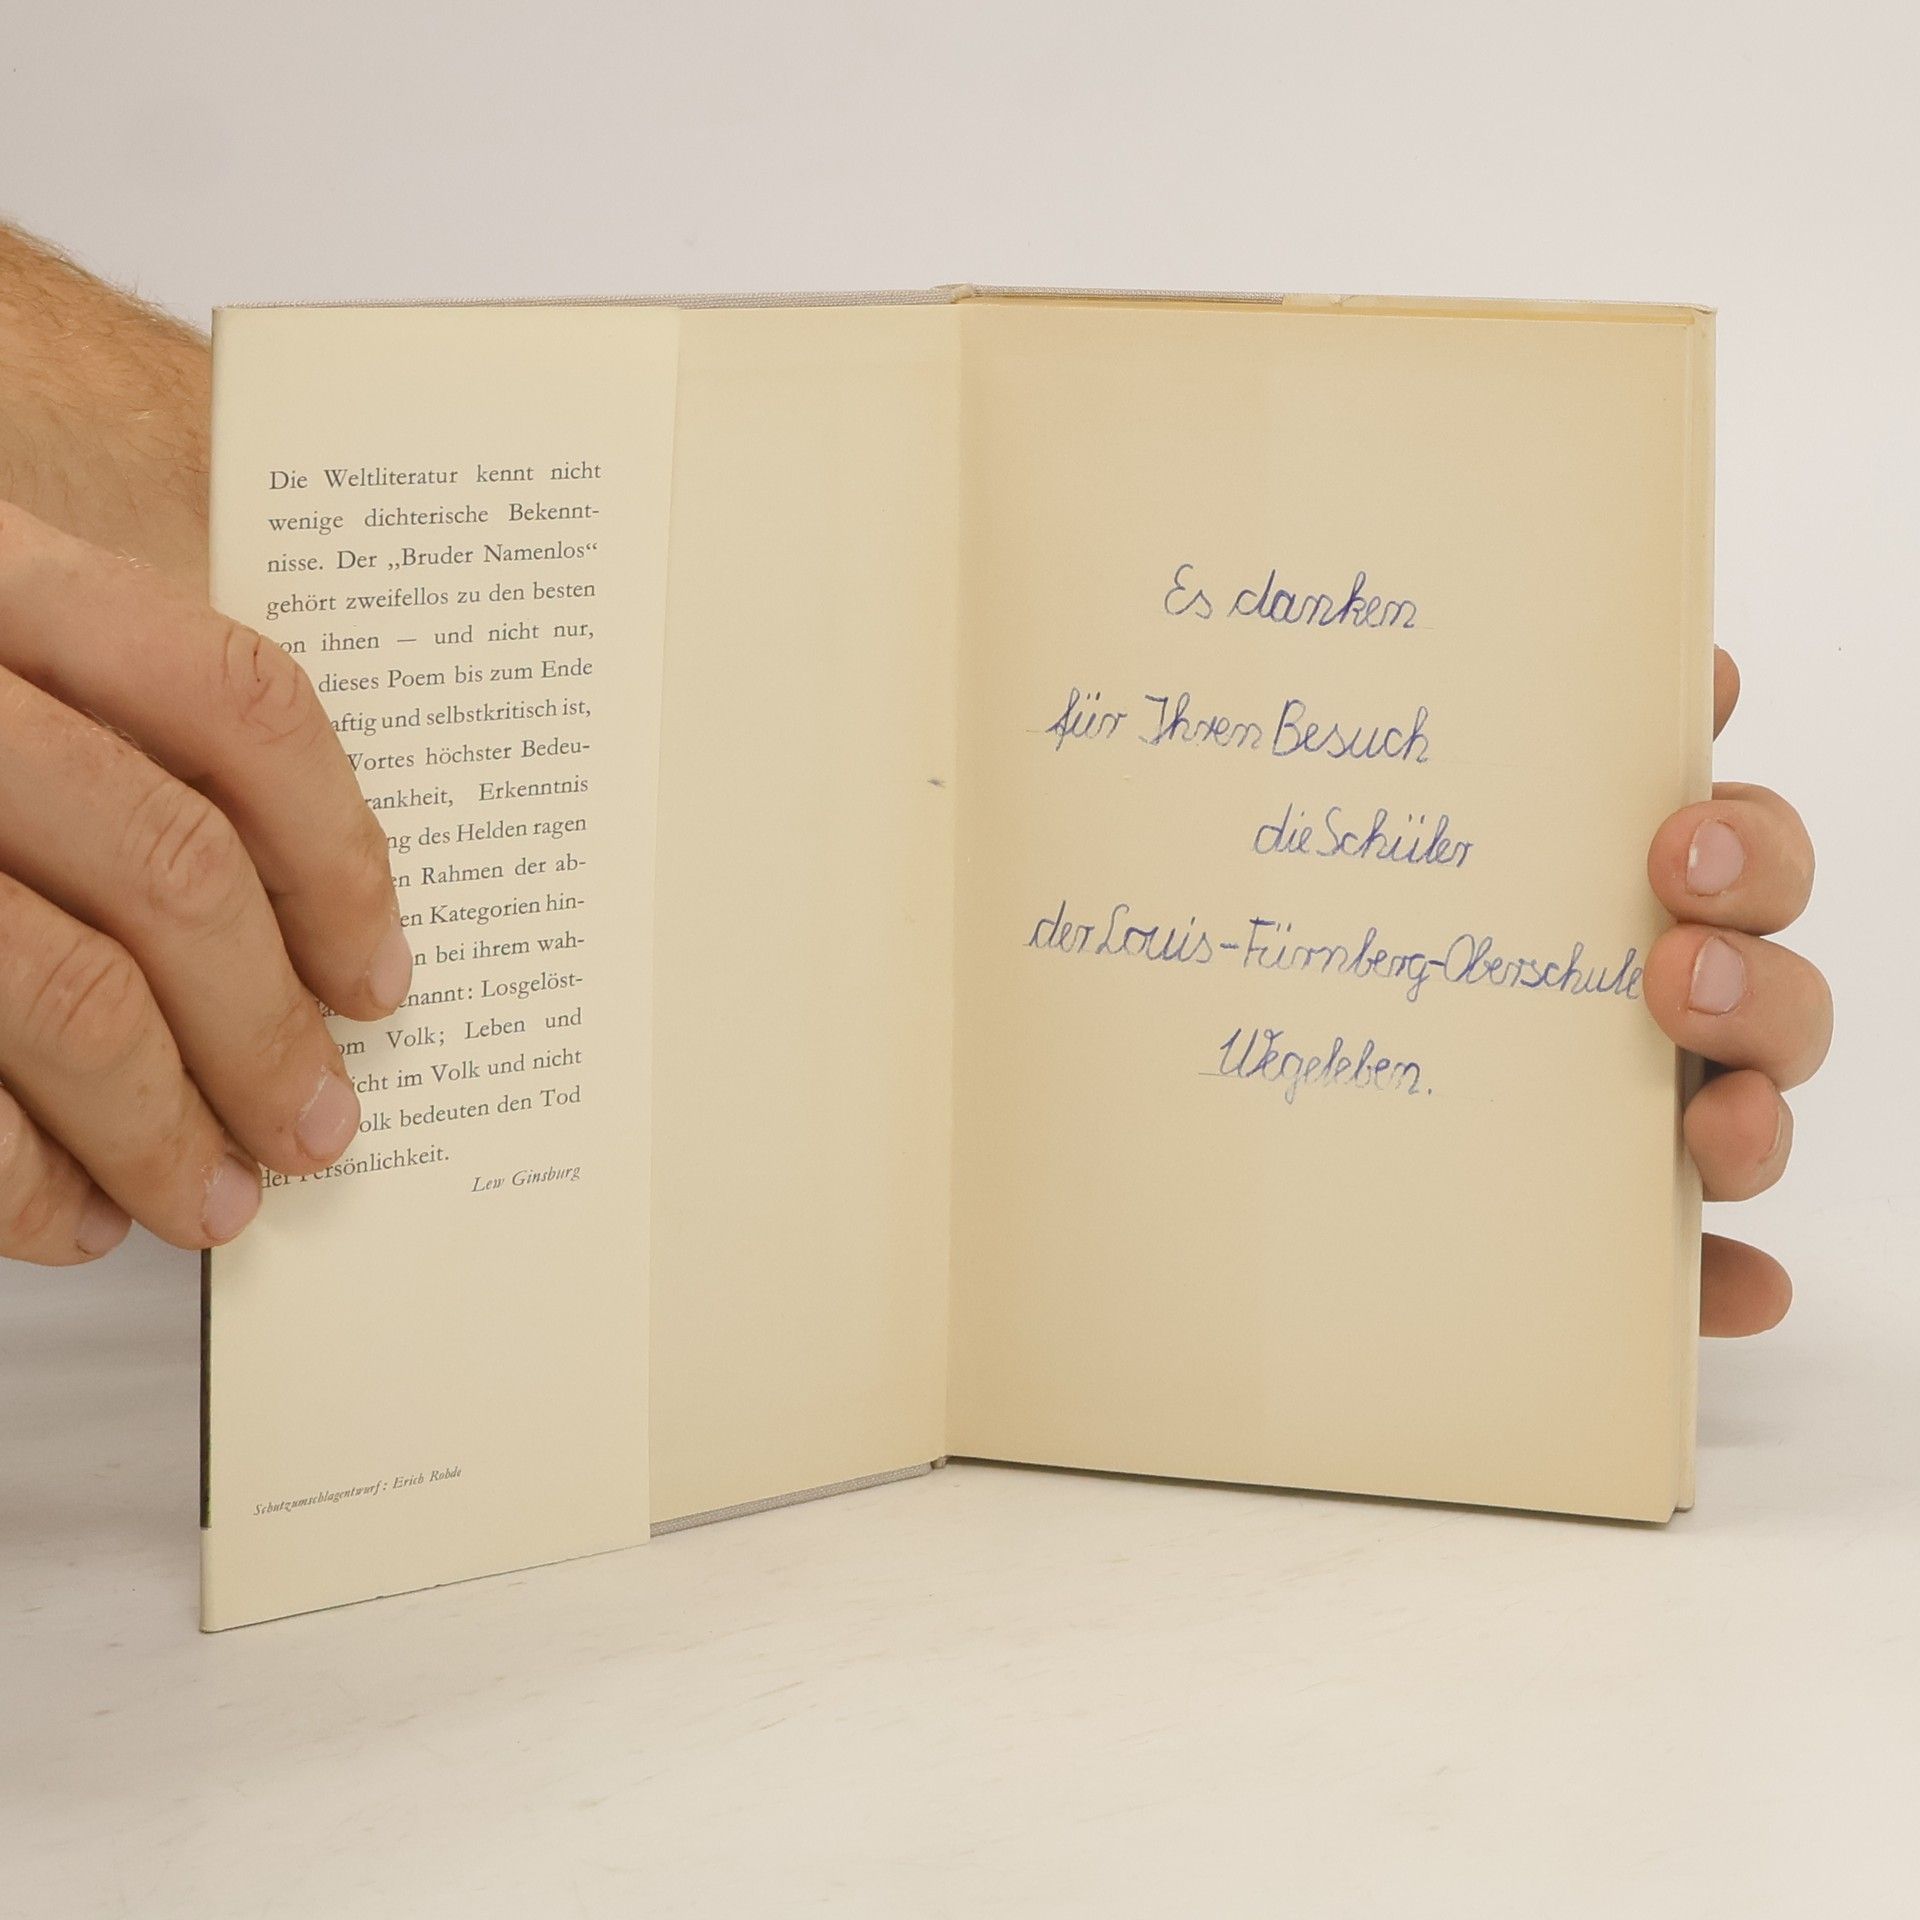 Die Weltliteratur kennt nicht
wenige dichterische Bekennt-
nisse. Der „Bruder Namenlos“
gehört zweifellos zu den besten
ihnen — und nicht nur,
dieses Poem bis zum Ende
und selbstkritisch ist,
Wortes höchster Bedeu-
Erkenntnis
des Helden ragen
Rahmen der ab-
Kategorien hin-
bei ihrem wah-
Losgelöst-
Volk; Leben und
im Volk und nicht
bedeuten den Tod
der Persönlichkeit.
Lew Ginsburg
Schutzumschlagentwurf: Erich Rohde
Es danken
für Ihren Besuch
die Schüler
der Louis-Fürnberg-Oberschule
Wegeleben.